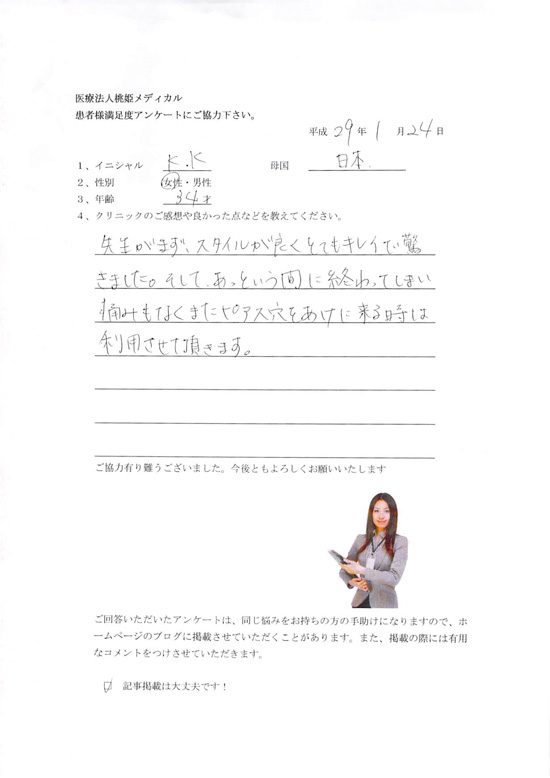 医療法人桃姫メディカル
患者様満足度アンケートにご協力下さい。
平成 29 年 1 月 24 日
1、イニシャル K.K 母国 日本.
2、性別 女性・男性
3、年齢 34才
4、クリニックのご感想や良かった点などを教えてください。
先生がまず、スタイルが良くとてもキレイで驚
きました。そして、あっという間に終わってしまい
痛みもなくまたピアス穴をあけに来る時は
利用させて頂きます。
ご協力有り難うございました。今後ともよろしくお願いいたします
ご回答いただいたアンケートは、同じ悩みをお持ちの方の手助けになりますので、ホ
ームページのブログに掲載させていただくことがあります。また、掲載の際には有用
なコメントをつけさせていただきます。
☑ 記事掲載は大丈夫です！